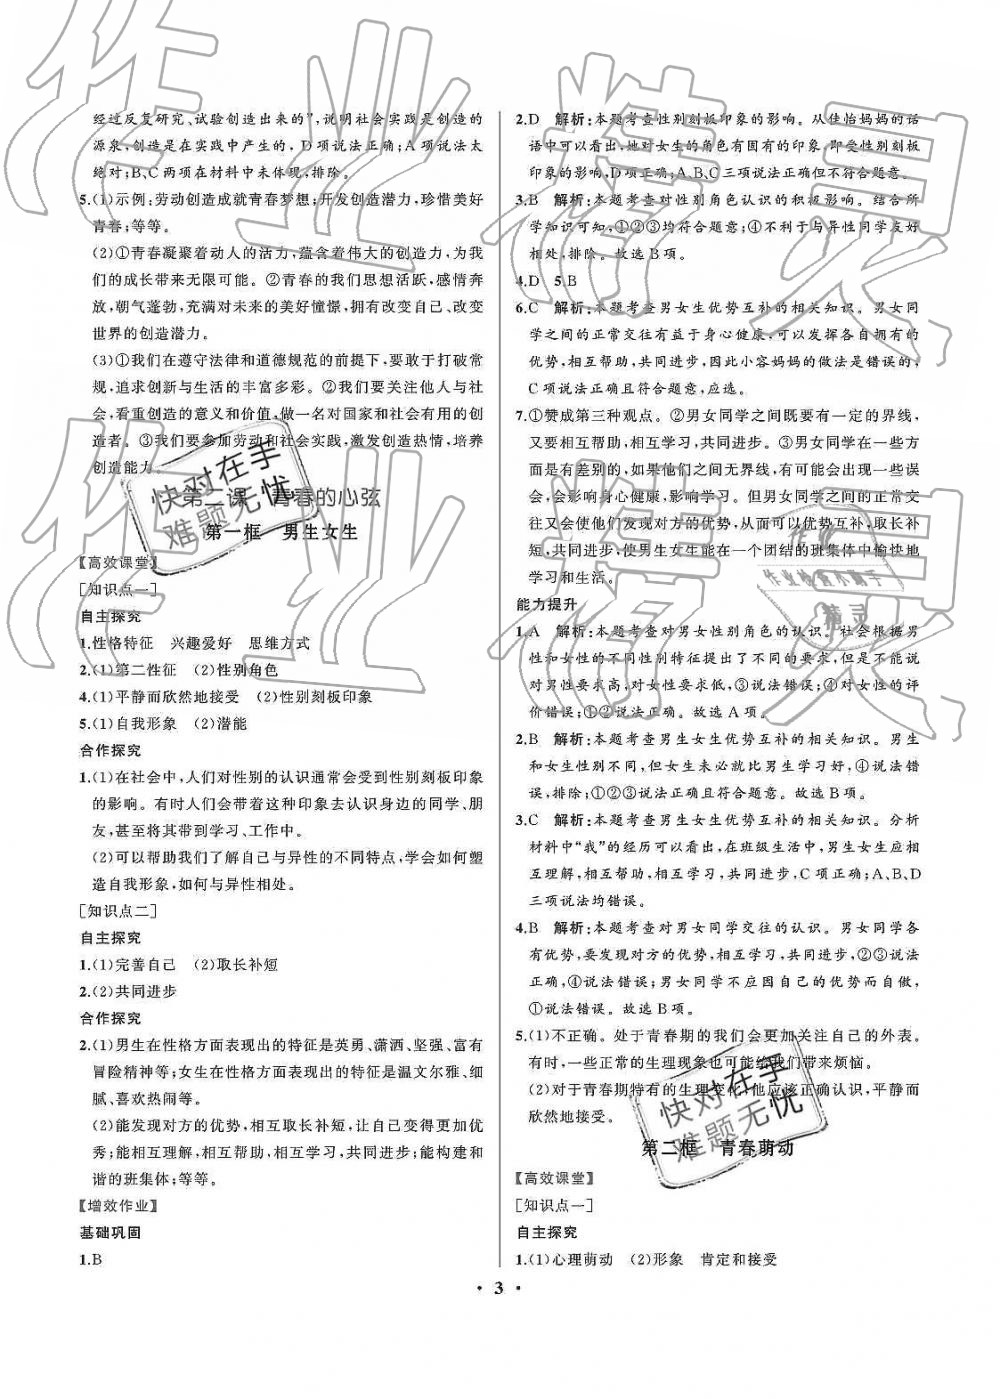 经过反复研究、试验创造出来的”,说明社会实践是创造的
源泉,创造是在实践中产生的,D项说法正确;A项说法太
绝对;B、C两项在材料中未体现,排除。
5.(1)示例:劳动创造成就青春梦想;开发创造潜力,珍惜美好
青春;等等。
(2)①青春凝聚着动人的活力,蕴含着伟大的创造力,为我
们的成长带来无限可能。②青春的我们思想活跃,感情奔
放,朝气蓬勃,充满对未来的美好憧憬,拥有改变自己、改变
世界的创造潜力。
(3)①我们在遵守法律和道德规范的前提下,要敢于打破常
规,追求创新与生活的丰富多彩。②我们要关注他人与社
会,看重创造的意义和价值,做一名对国家和社会有用的创
造者。③我们要参加劳动和社会实践,激发创造热情,培养
创造能力。
第二课 青春的心弦
第一框 男生女生
【高效课堂】
[知识点一]
自主探究
1.性格特征 兴趣爱好 思维方式
2.(1)第二性征 (2)性别角色
4.(1)平静而欣然地接受 (2)性别刻板印象
5.(1)自我形象 (2)潜能
合作探究
1.(1)在社会中,人们对性别的认识通常会受到性别刻板印象
的影响。有时人们会带着这种印象去认识身边的同学、朋
友,甚至将其带到学习、工作中。
(2)可以帮助我们了解自己与异性的不同特点,学会如何塑
造自我形象,如何与异性相处。
[知识点二]
自主探究
1.(1)完善自己 (2)取长补短
2.(2)共同进步
合作探究
2.(1)男生在性格方面表现出的特征是英勇、潇洒、坚强、富有
冒险精神等;女生在性格方面表现出的特征是温文尔雅、细
腻、喜欢热闹等。
(2)能发现对方的优势,相互取长补短,让自己变得更加优
秀;能相互理解,相互帮助,相互学习,共同进步;能构建和
谐的班集体;等等。
【增效作业】
基础巩固
1.B
2.D 解析:本题考查性别刻板印象的影响。从佳怡妈妈的话
语中可以看出,她对女生的角色有固有的印象,即受性别刻板
印象的影响,D项正确;A、B、C三项说法正确但不符合题意。
3.B 解析:本题考查对性别角色认识的积极影响。结合所
学知识可知,①②③均符合题意;④不利于与异性同学友好
相处,排除。故选B项。
4.D 5.B
6.C 解析:本题考查男女生优势互补的相关知识。男女同
学之间的正常交往有益于身心健康,可以发挥各自拥有的
优势,相互帮助,共同进步,因此小容妈妈的做法是错误的,
C项说法正确且符合题意,应选。
7.①赞成第三种观点。②男女同学之间既要有一定的界线,
又要相互帮助,相互学习,共同进步。③男女同学在一些方
面是有差别的,如果他们之间无界线,有可能会出现一些误
会,会影响身心健康,影响学习。但男女同学之间的正常交
往又会使他们发现对方的优势,从而可以优势互补,取长补
短,共同进步,使男生女生能在一个团结的班集体中愉快地
学习和生活。
能力提升
1.A 解析:本题考查对男女性别角色的认识。社会根据男
性和女性的不同性别特征提出了不同的要求,但是不能说
对男性要求高,对女性要求低,③说法错误;④对女性的评
价错误;①②说法正确。故选A项。
2.B 解析:本题考查男生女生优势互补的相关知识。男生
和女生的性别不同,但女生未必就比男生学习好,④说法错
误,排除;①②③说法正确且符合题意。故选B项。
3.C 解析:本题考查男生女生优势互补的相关知识。分析
材料中“我”的经历可以看出,在班级生活中,男生女生应相
互理解,相互帮助,相互学习,共同进步,C项正确;A、B、D
三项说法均错误。
4.B 解析:本题考查对男女同学交往的认识。男女同学各
有优势,要发现对方的优势,相互学习,共同进步,②③说法
正确,④说法错误;男女同学不应因自己的优势而自傲,
①说法错误。故选B项。
5.(1)不正确。处于青春期的我们会更加关注自己的外表。
有时,一些正常的生理现象也可能给我们带来烦恼。
(2)对于青春期特有的生理变化,他应该正确认识,平静而
欣然地接受。
第二框 青春萌动
【高效课堂】
[知识点一]
自主探究
1.(1)心理萌动 (2)形象 肯定和接受
• 3 •
作业精灵
快对在手
难题无忧
作业检查小助手
精灵
快对在手
难题无忧